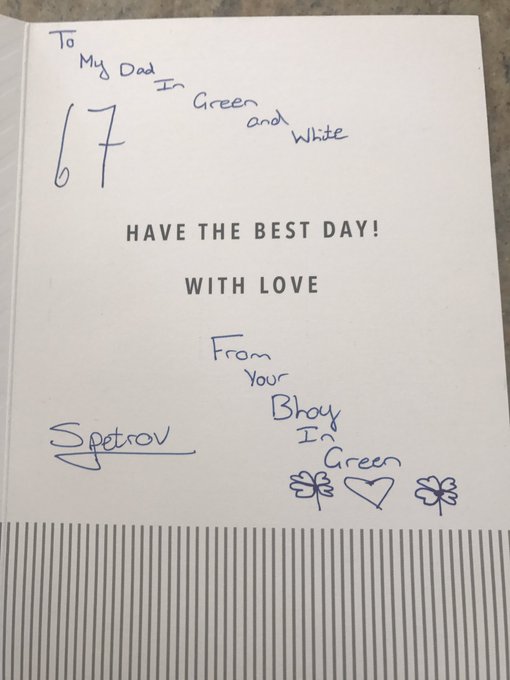 To
My Dad
In
Green
and
White
67
HAVE THE BEST DAY!
WITH LOVE
From
Your
Bhoy
In
Green
Spetrov